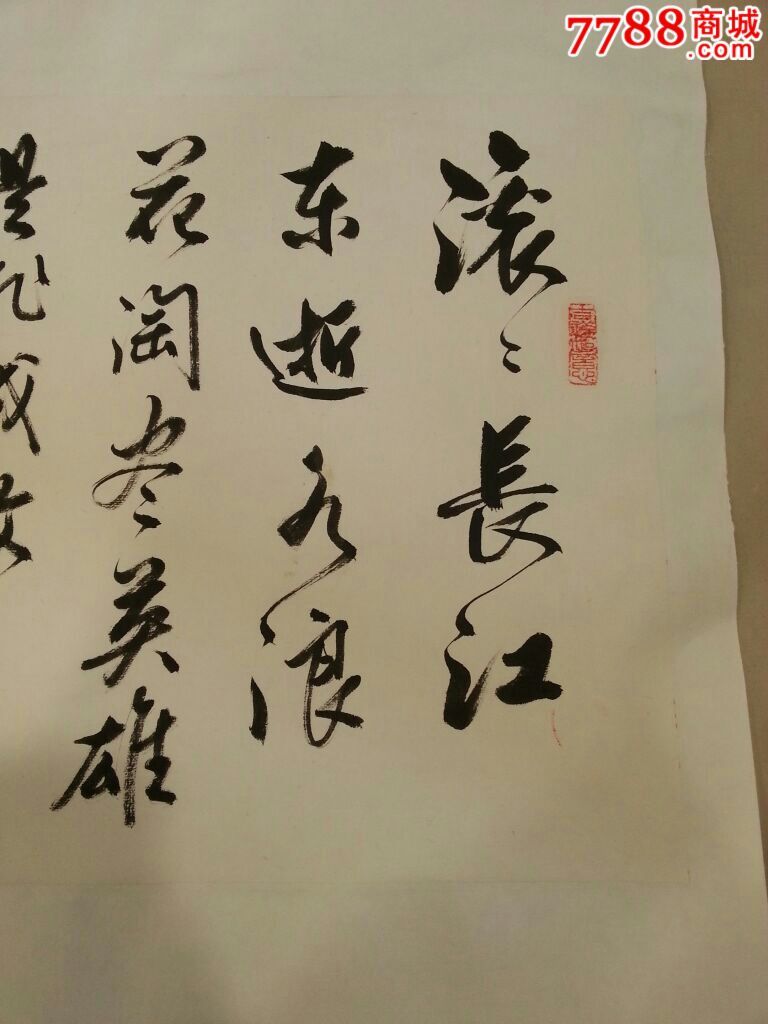 7788商城
.com
滚々长江
东逝水浪
花淘尽英雄
是非成敗